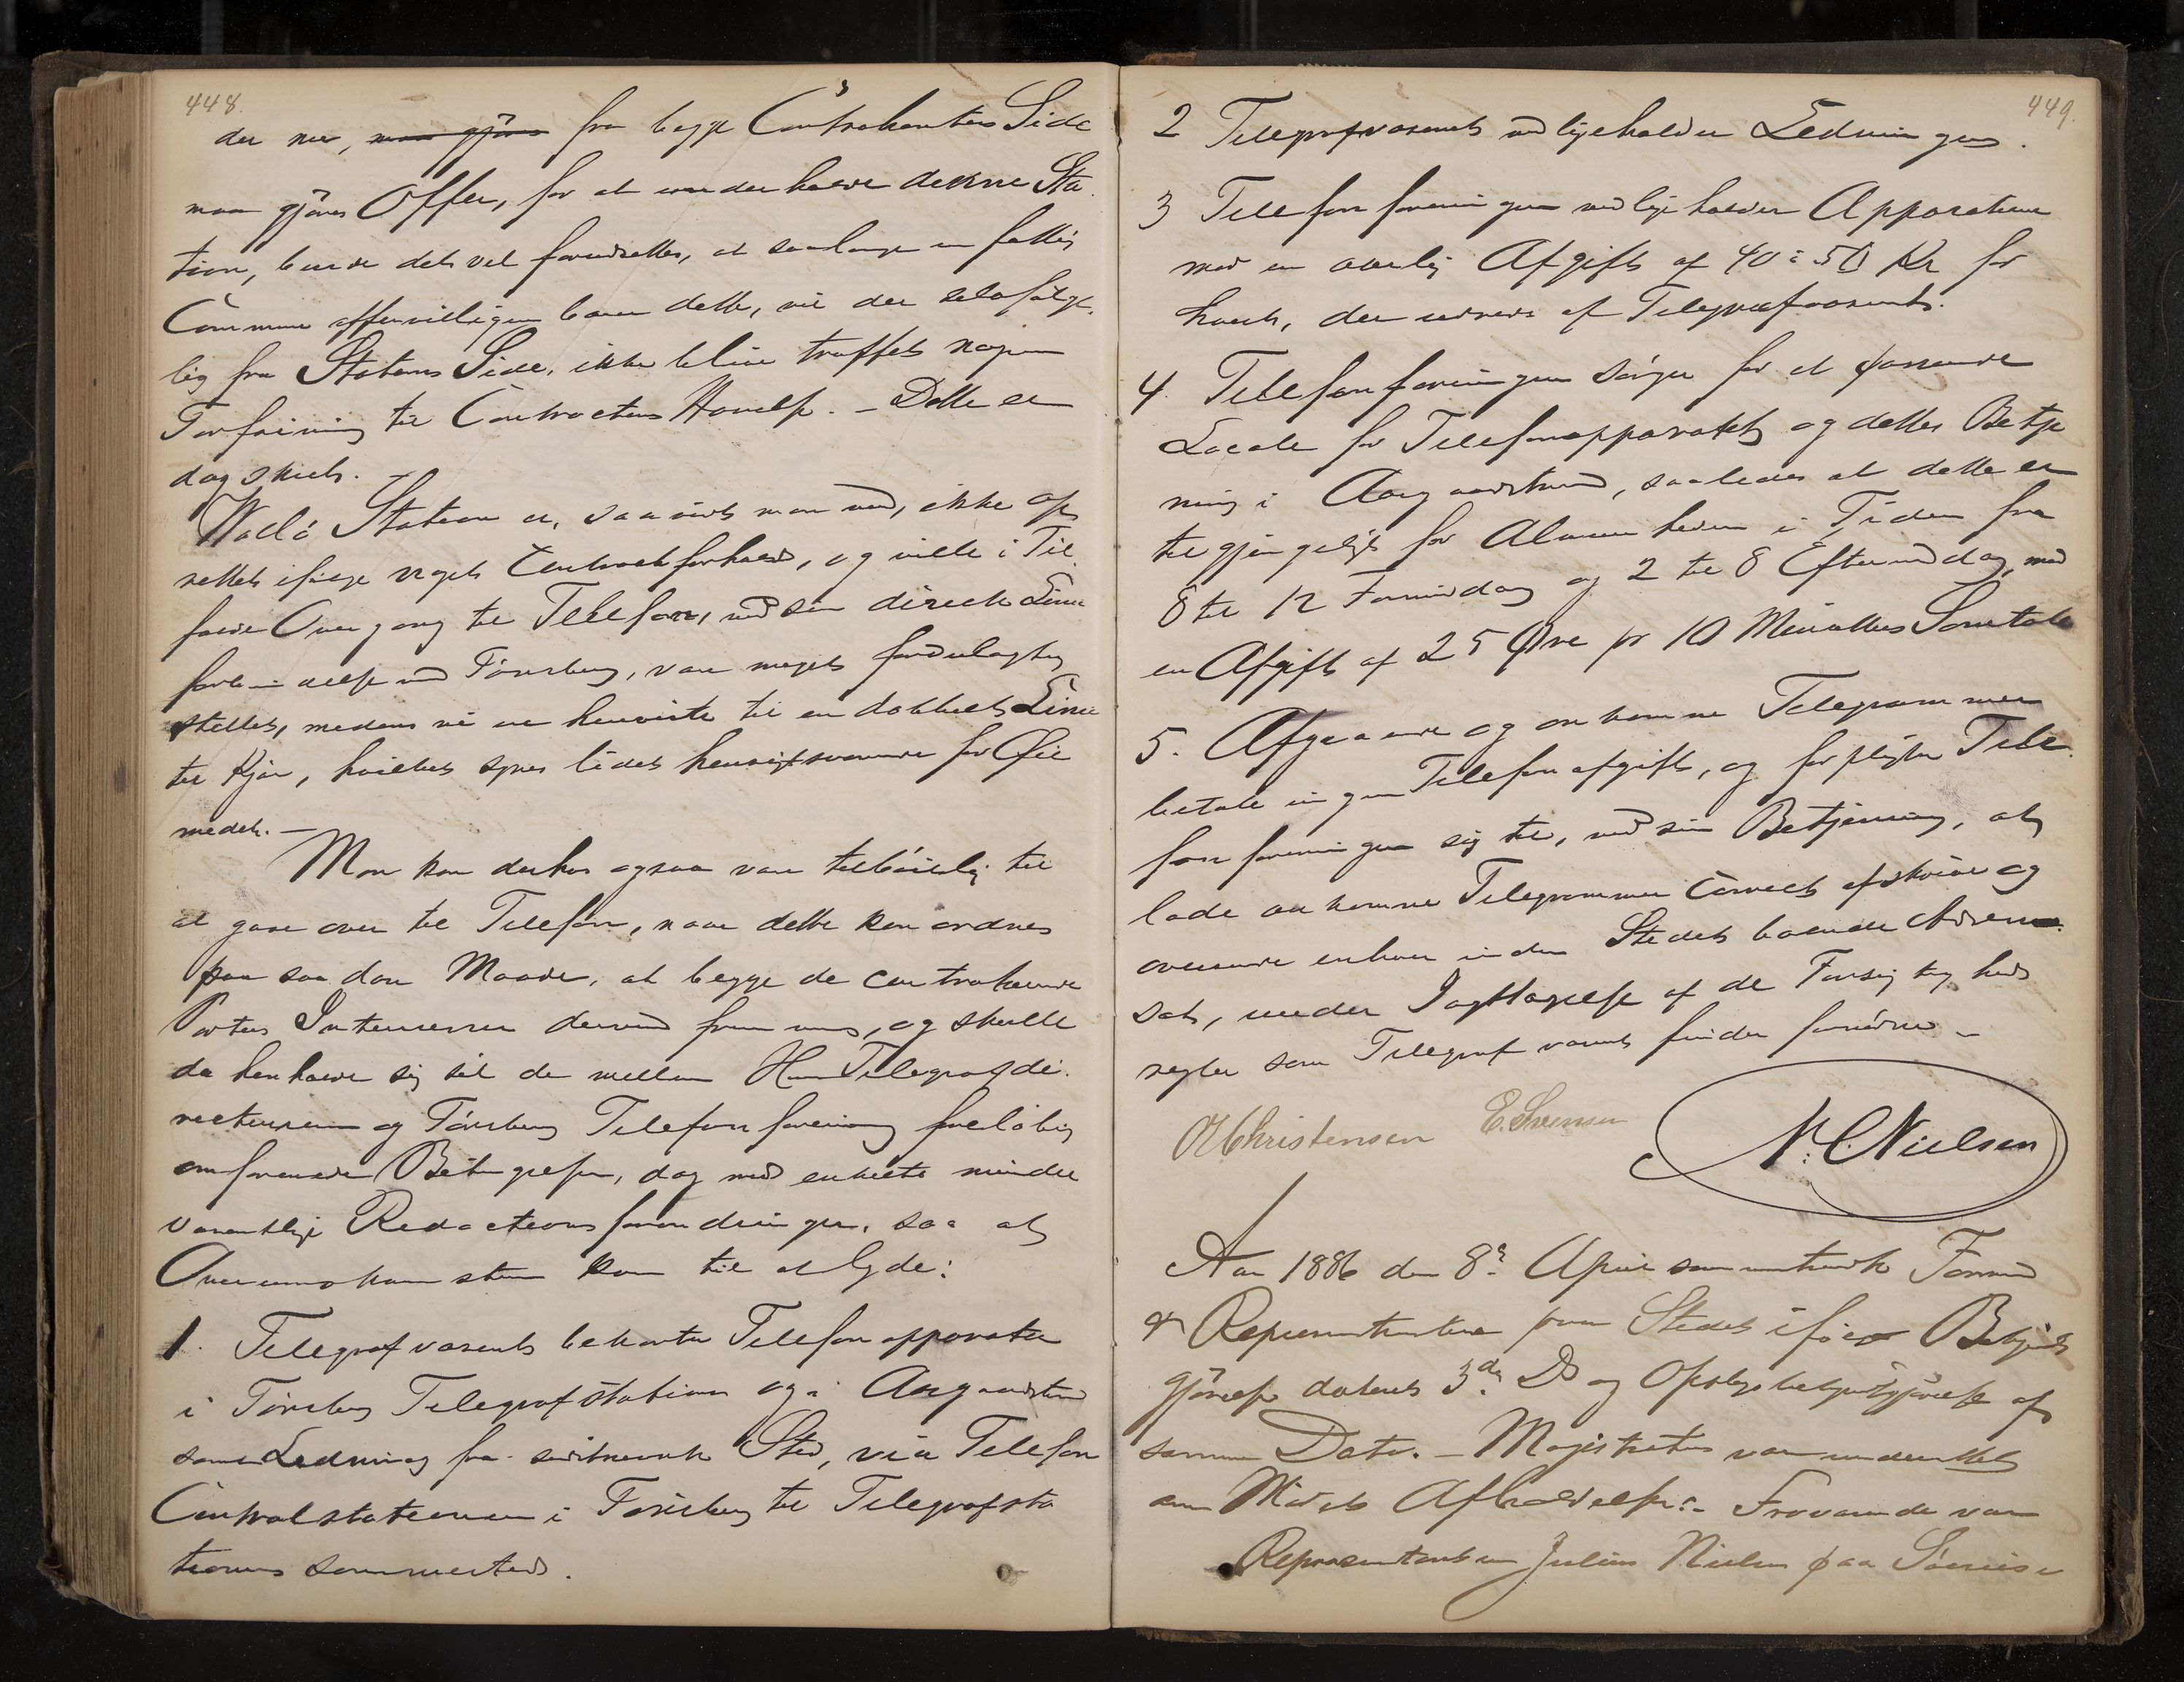 448.
der nu, maa gjøres fra begge Contrahenters Side
maa gjøres Offer, for at underholde denne Sta
tion, burde det vel forudsættes, at saalænge en fattig
Commune offervilligen bærer dette, vil der selvfølge
lig fra Statens Side, ikke blive truffet nogen
Forføining til Contractens Hævelse. – Dette er
dog skeet. –
Vallø Station er, saavidt man ved, ikke op
rettet ifølge noget Contractforhold, og vilde i Til
fælde Overgang til Telefon, ved sin directe Linie
forbindelse med Tønsberg, være meget fordelagtig
stillet, medens vi ere henviste til en dobbelt Linie
til Kjær, hvilket synes lidet hensigtsvarende for Øie
medet. –
Man kan derhos ogsaa være tilbøielig til
at gaae over til Telefon, naar dette kan ordnes
paa saadan Maade, at begge de contraherende
Parters Interesser derved fremmes, og skulle
da henholde sig til de mellem Herr Telegrafdi
recteuren og Tønsberg Telefonforening foreløbig
omforenede Betingelser, dog med enkelte mindre
væsentlige Redactionsforandringer, saa at
Overenskomsten kom til at lyde:
1. Telegrafvæsenet bekoster Telefonapparater
i Tønsberg Telegrafstation og i Aasgaardstrand
samt Ledning fra sidstnævnte Sted, via Telefon
Centralstationen i Tønsberg til Telegrafsta
tionen sammesteds.
449.
2 Telegrafvæsenet vedligeholder Ledningen.
3 Telefonforeningen vedligeholder Apparaterne
mod en aarlig Afgift af 40 à 50 Kr for
hvert, der udredes af Telegrafvæsenet.
4. Telefonforeningen sørger for et passende
Locale for Telefonapparatet og dettes Betje
ning i Aasgaardstrand, saaledes at dette er
tilgjængeligt for Almenheden i Tiden fra
8 til 12 Formiddag og 2 til 8 Eftermiddag, mod
en Afgift af 25 Øre pr 10 Minutters Samtale
5. Afgaaende og ankomne Telegrammer
betale ingen Telefonafgift, og forpligter Tele
fonforeningen sig til, ved sin Betjening, at
lade ankomne Telegrammer correct afskrive og
oversende enhver inden Stedet boende Adres
sat, under Iagttagelse af de Forsigtigheds
regler som Telegrafvæsenet finder fornødne –
O H Christensen E. Svensen N. C. Nielsen
Aar 1886 den 8de April sammentraadte Formænd
& Repræsentanter paa Stedet ifølge Bekjendt
gjørelse dateret 3de Ds og Opslagsbekjendtgjørelse af
samme Dato. – Magistraten var underrettet
om Mødets Afholdelse. – Fraværende var
Repræsentanten Julius Nielsen paa Søreise